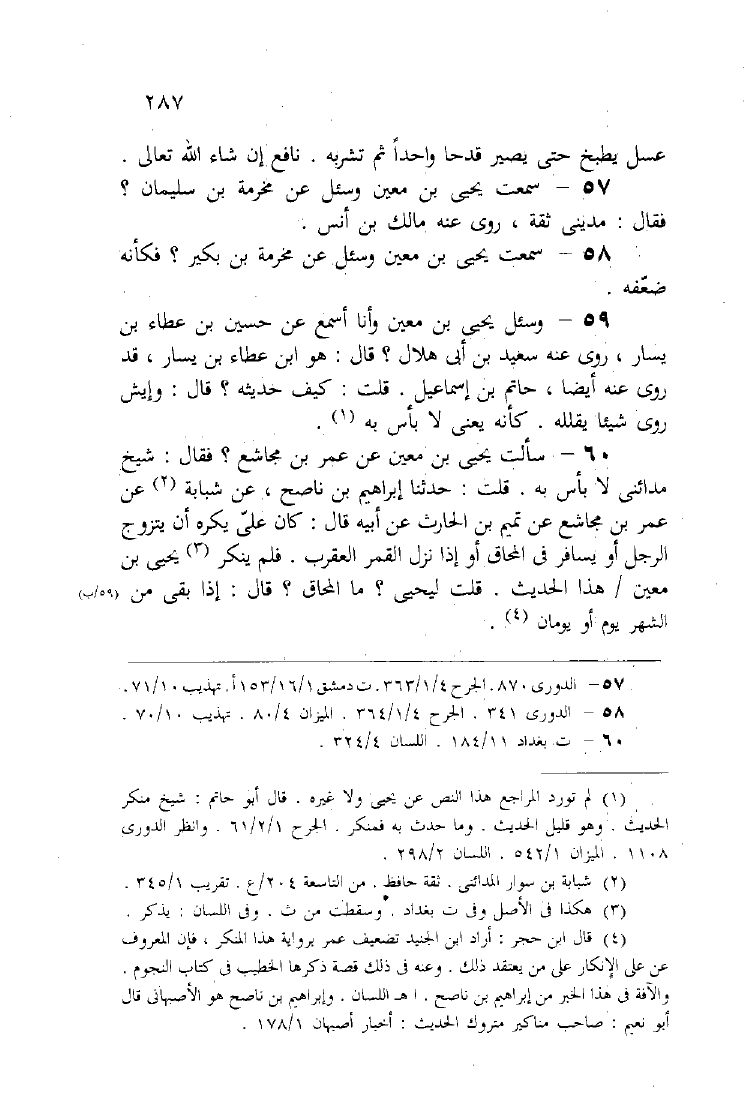 ٢٨٧
عسل يطبخ حتى يصير قدحا واحداً ثم تشربه . نافع إن شاء الله تعالى .
٥٧ – سمعت يحيى بن معين وسئل عن مخرمة بن سليمان ؟
فقال : مدينى ثقة ، روى عنه مالك بن أنس .
٥٨ – سمعت يحيى بن معين وسئل عن مخرمة بن بكير ؟ فكأنه
ضعّفه .
٥٩ – وسئل يحيى بن معين وأنا أسمع عن حسين بن عطاء بن
يسار ، روى عنه سعيد بن أبى هلال ؟ قال : هو ابن عطاء بن يسار ، قد
روى عنه أيضا ، حاتم بن إسماعيل . قلت : كيف حديثه ؟ قال : وإيش
روى شيئا يقلله . كأنه يعنى لا بأس به (١) .
٦٠ – سألت يحيى بن معين عن عمر بن مجاشع ؟ فقال : شيخ
مدائنى لا بأس به . قلت : حدثنا إبراهيم بن ناصح ، عن شبابة (٢) عن
عمر بن مجاشع عن تميم بن الحارث عن أبيه قال : كان علىّ يكره أن يتزوج
الرجل أو يسافر فى المحاق أو إذا نزل القمر العقرب . فلم ينكر (٣) يحيى بن
معين / هذا الحديث . قلت ليحيى ؟ ما المحاق ؟ قال : إذا بقى من (٥٩/ب)
الشهر يوم أو يومان (٤) .
٥٧ – الدورى ٨٧٠. الجرح ٣٦٣/١/٤. ت دمشق ١٥٣/١٦/١أ. تهذيب ٧١/١٠.
٥٨ – الدورى ٣٤١ . الجرح ٣٦٤/١/٤ . الميزان ٨٠/٤ . تهذيب ٧٠/١٠ .
٦٠ – ت بغداد ١٨٤/١١ . اللسان ٣٢٤/٤ .
(١) لم تورد المراجع هذا النص عن يحيى ولا غيره . قال أبو حاتم : شيخ منكر
الحديث . وهو قليل الحديث . وما حدث به فمنكر . الجرح ٦١/٢/١ . وانظر الدورى
١١٠٨ . الميزان ٥٤٢/١ . اللسان ٢٩٨/٢ .
(٢) شبابة بن سوار المدائنى . ثقة حافظ . من التاسعة ٢٠٤/ع . تقريب ٣٤٥/١ .
(٣) هكذا فى الأصل وفى ت بغداد . وسقطت من ث . وفى اللسان : يذكر .
(٤) قال ابن حجر : أراد ابن الجنيد تضعيف عمر برواية هذا المنكر ، فإن المعروف
عن على الإنكار على من يعتقد ذلك . وعنه فى ذلك قصة ذكرها الخطيب فى كتاب النجوم .
والآفة فى هذا الخبر من إبراهيم بن ناصح . ا هـ اللسان . وإبراهيم بن ناصح هو الأصبهانى قال
أبو نعيم : صاحب مناكير متروك الحديث : أخبار أصبهان ١٧٨/١ .